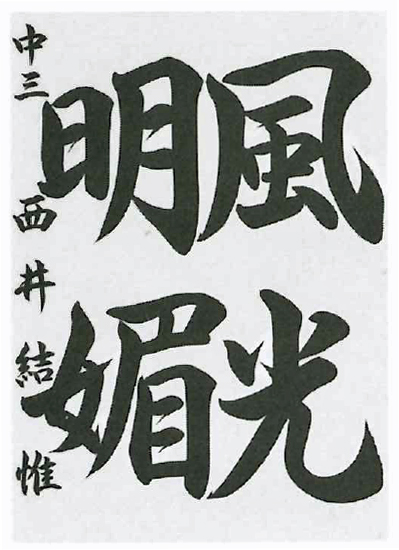 風光
明媚
中三 西井結惟